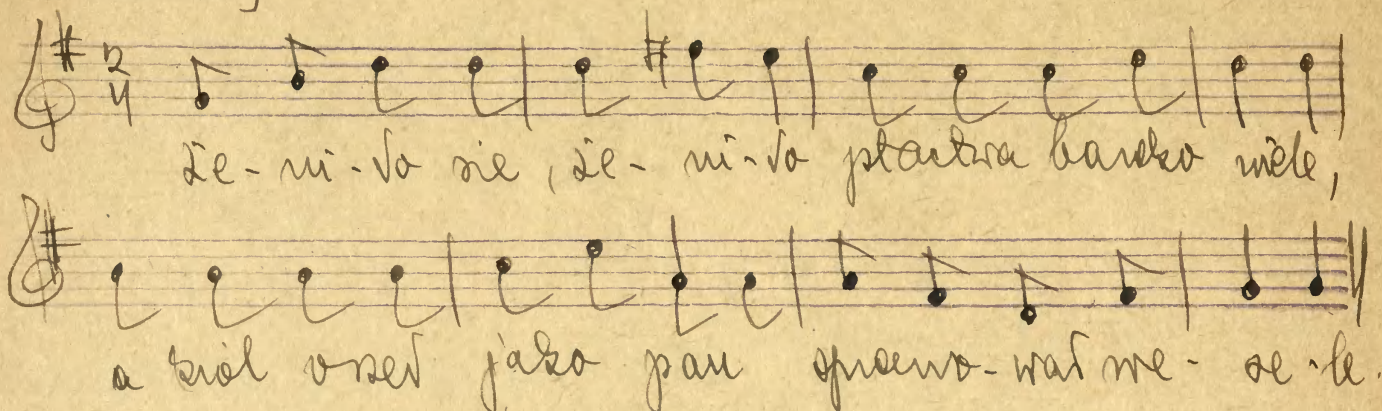 2
4
że-ni-ło sie, że-ni-ło ptactwa bardzo wiele,
a król orzeł jako pan sprawo-wał we-se-le.